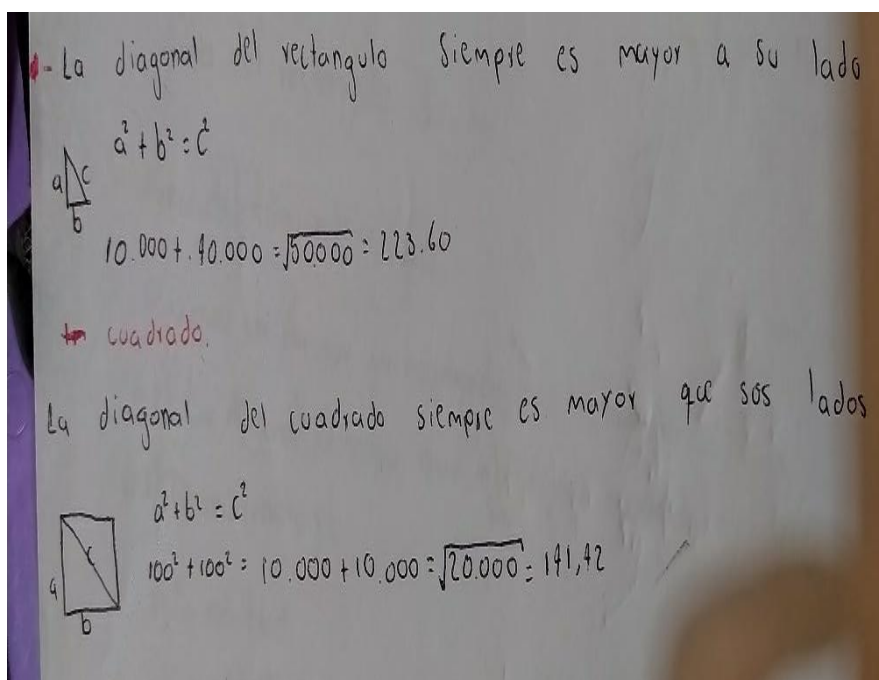 - La diagonal del rectangulo siempre es mayor a su lado
a² + b² = c²
a c
b
10.000 + 40.000 = √50000 = 223.60
cuadrado.
La diagonal del cuadrado siempre es mayor que sos lados
a² + b² = c²
100² + 100² = 10.000 + 10.000 = √20.000 = 141,42
c
a
b